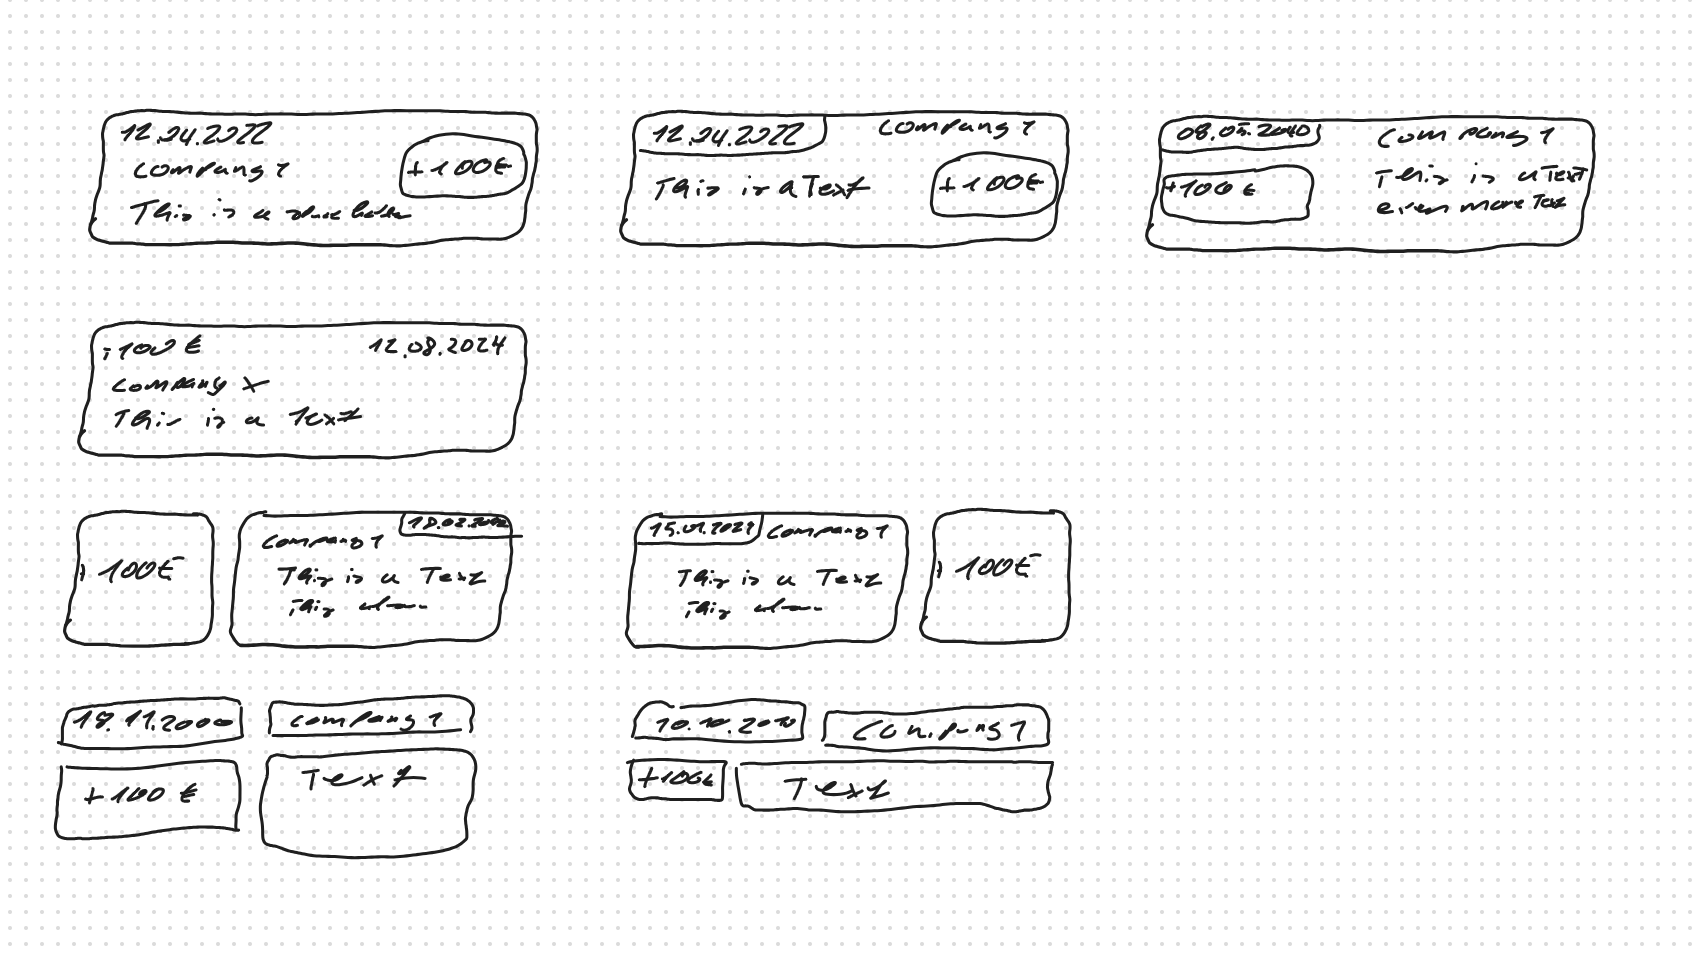 12.24.2022
Company 1
+100€
This is a
12.24.2022
Company 1
This is a Text
+100€
08.05.2040
Company 1
+100 €
This is a Text
even more Text
100 €
12.08.2024
Company X
This is a Text
100€
Company 1
This is a Text
This
15.01.2021
Company 1
This is a Text
This
100€
18.11.2000
Company 1
+100 €
Text
10.10.2010
Company 1
+100€
Text